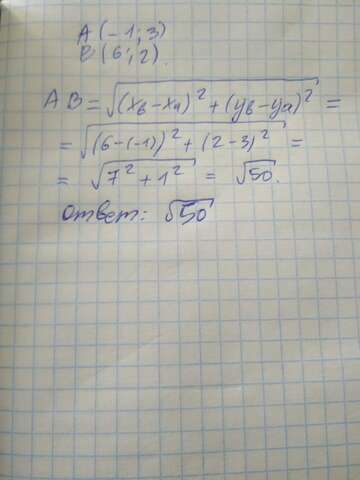 A(-1;3)
B(6;2).
AB = √(xв-xа)² + (yв-yа)² =
= √(6-(-1))² + (2-3)² =
= √7² + 1² = √50.
Ответ: √50